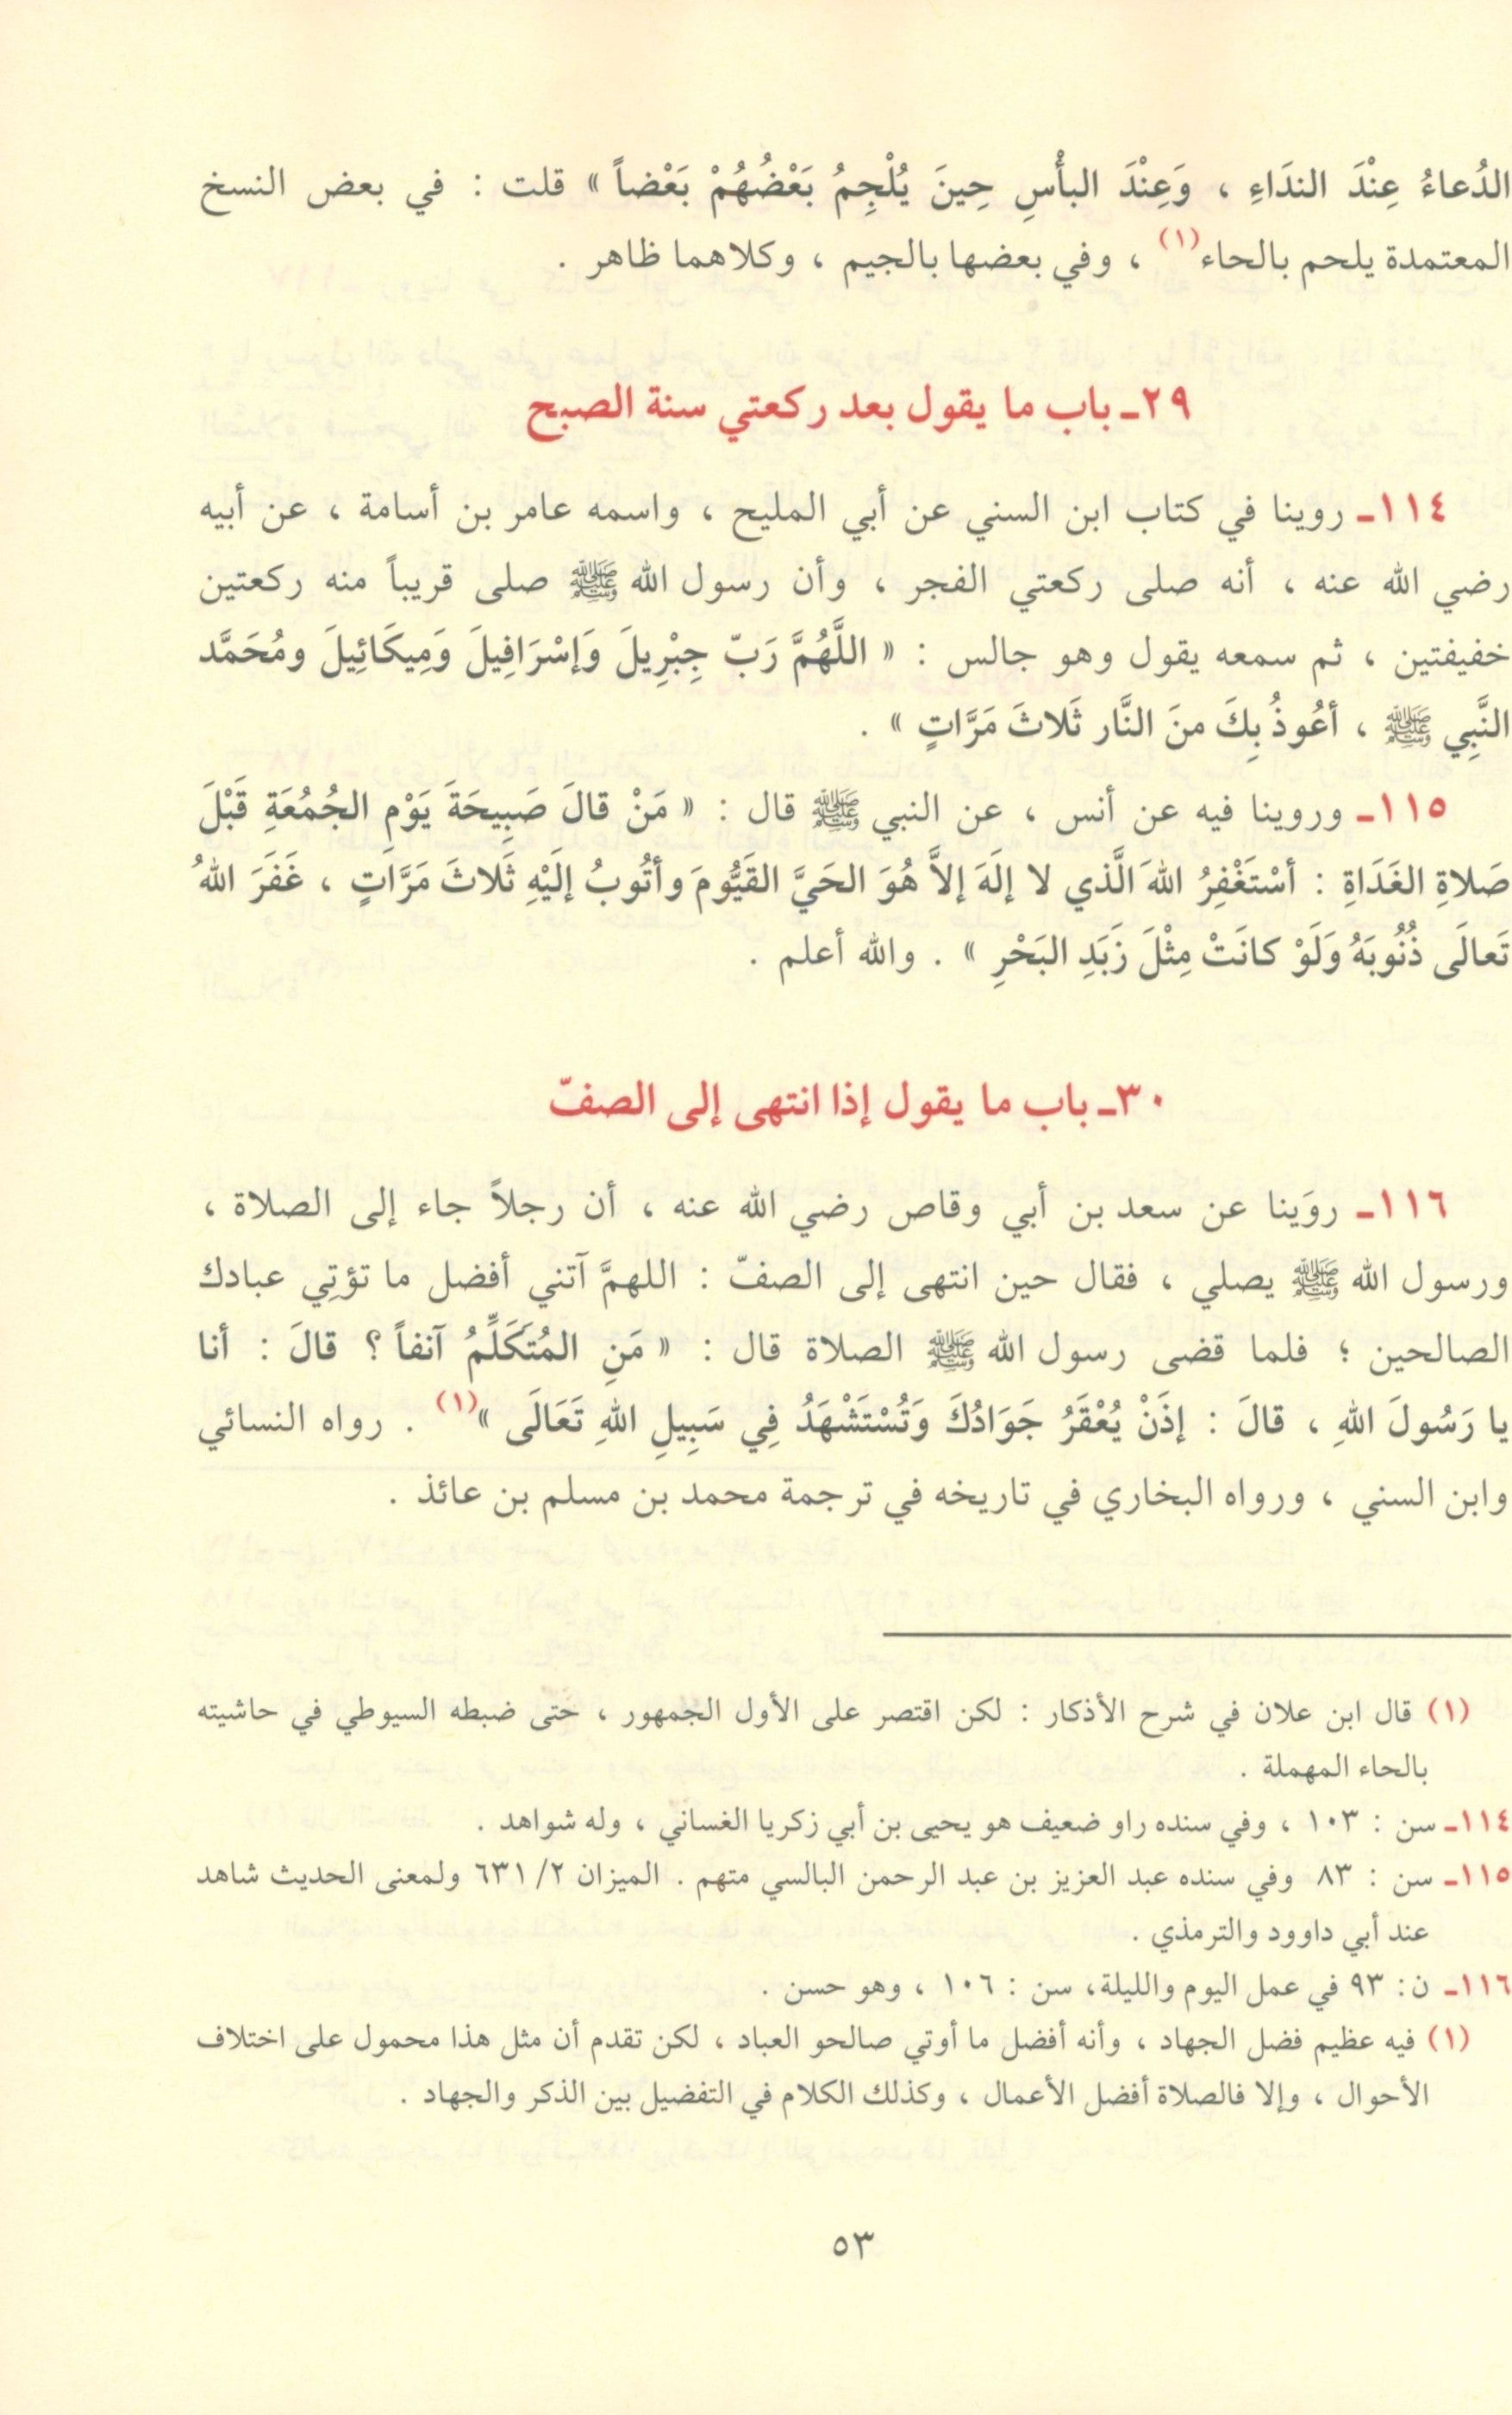 الدُعاءُ عِنْدَ الندَاءِ ، وَعِنْدَ البأْسِ حِينَ يُلْجِمُ بَعْضُهُمْ بَعْضاً » قلت : في بعض النسخ
المعتمدة يلحم بالحاء(١) ، وفي بعضها بالجيم ، وكلاهما ظاهر .
٢٩ـ باب ما يقول بعد ركعتي سنة الصبح
١١٤ـ روينا في كتاب ابن السني عن أبي المليح ، واسمه عامر بن أسامة ، عن أبيه
رضي الله عنه ، أنه صلى ركعتي الفجر ، وأن رسول الله ﷺ صلى قريباً منه ركعتين
خفيفتين ، ثم سمعه يقول وهو جالس : « اللَّهُمَّ رَبّ جِبْرِيلَ وَإسْرَافِيلَ وَمِيكَائِيلَ ومُحَمَّد
النَّبِي ﷺ ، أعُوذُ بِكَ منَ النَّار ثَلاثَ مَرَّاتٍ » .
١١٥ـ وروينا فيه عن أنس ، عن النبي ﷺ قال : « مَنْ قالَ صَبِيحَةَ يَوْمِ الجُمُعَةِ قَبْلَ
صَلاةِ الغَدَاةِ : أسْتَغْفِرُ اللهَ الَّذي لا إلَهَ إلاَّ هُوَ الحَيَّ القَيُّومَ وأتُوبُ إلَيْهِ ثَلاثَ مَرَّاتٍ ، غَفَرَ اللهُ
تَعالَى ذُنُوبَهُ وَلَوْ كانَتْ مِثْلَ زَبَدِ البَحْرِ » . والله أعلم .
٣٠ـ باب ما يقول إذا انتهى إلى الصفّ
١١٦ـ روَينا عن سعد بن أبي وقاص رضي الله عنه ، أن رجلاً جاء إلى الصلاة ،
ورسول الله ﷺ يصلي ، فقال حين انتهى إلى الصفّ : اللهمَّ آتني أفضل ما تؤتِي عبادك
الصالحين ؛ فلما قضى رسول الله ﷺ الصلاة قال : « مَنِ المُتَكَلِّمُ آنفاً ؟ قالَ : أنا
يا رَسُولَ اللهِ ، قالَ : إذَنْ يُعْقَرُ جَوَادُكَ وَتُسْتَشْهَدُ فِي سَبِيلِ اللهِ تَعَالَى »(١) . رواه النسائي
وابن السني ، ورواه البخاري في تاريخه في ترجمة محمد بن مسلم بن عائذ .
(١) قال ابن علان في شرح الأذكار : لكن اقتصر على الأول الجمهور ، حتى ضبطه السيوطي في حاشيته
بالحاء المهملة .
١١٤ـ سن : ١٠٣ ، وفي سنده راو ضعيف هو يحيى بن أبي زكريا الغساني ، وله شواهد .
١١٥ـ سن : ٨٣ وفي سنده عبد العزيز بن عبد الرحمن البالسي متهم . الميزان ٢/ ٦٣١ ولمعنى الحديث شاهد
عند أبي داوود والترمذي .
١١٦ـ ن: ٩٣ في عمل اليوم والليلة، سن : ١٠٦ ، وهو حسن .
(١) فيه عظيم فضل الجهاد ، وأنه أفضل ما أوتي صالحو العباد ، لكن تقدم أن مثل هذا محمول على اختلاف
الأحوال ، وإلا فالصلاة أفضل الأعمال ، وكذلك الكلام في التفضيل بين الذكر والجهاد .
٥٣